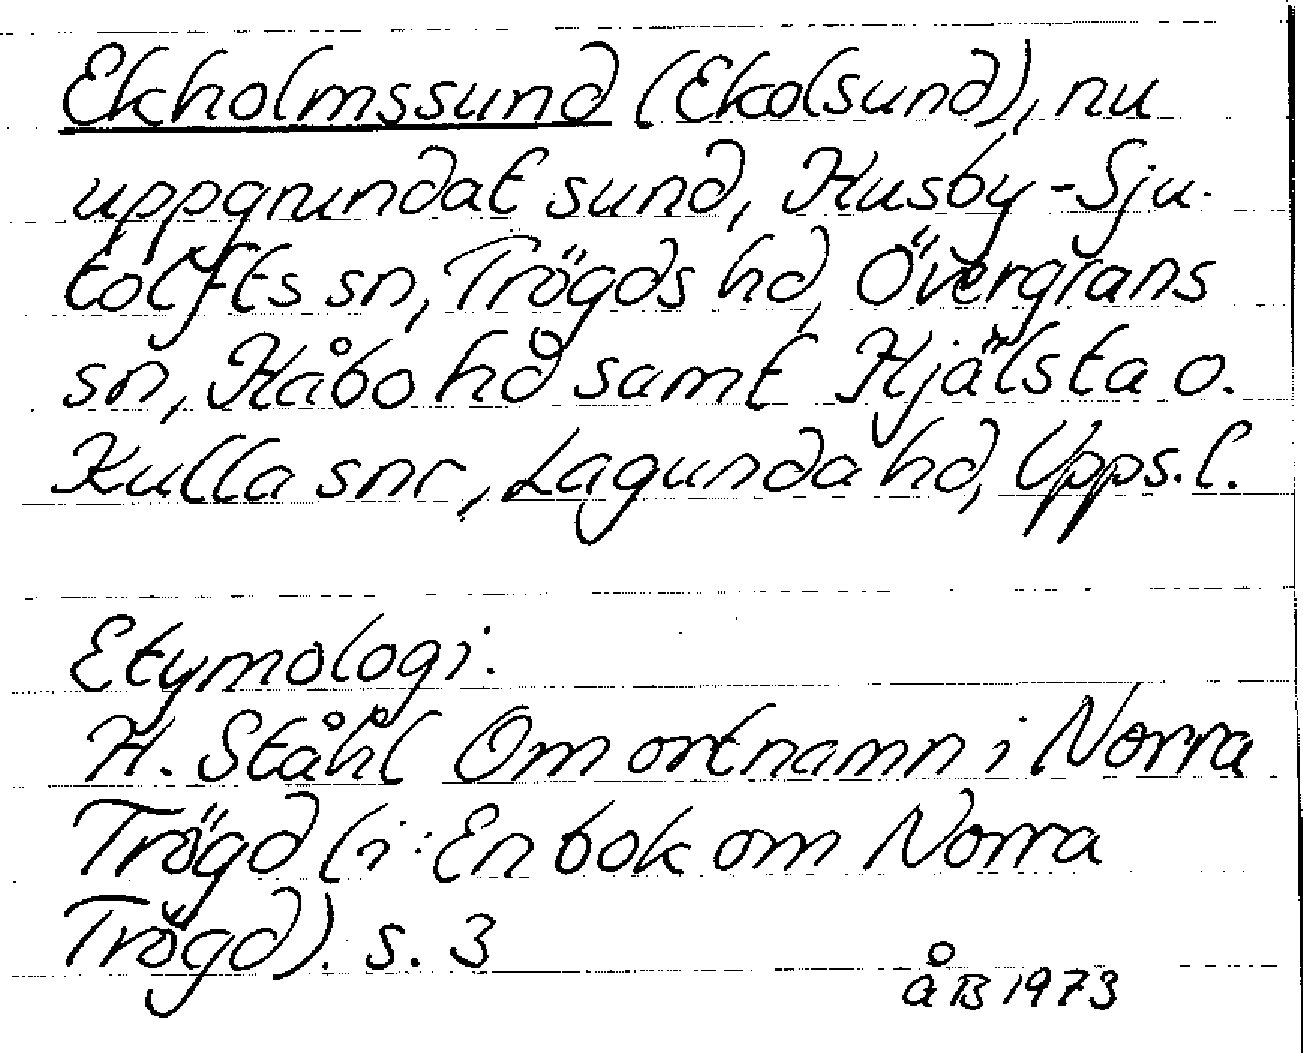 Ekholmssund (Ekolsund), nu
uppgrundat sund, Husby-Sju-
tolfts sn, Trögds hd, Övergrans
sn, Håbo hd samt Hjälsta o.
Kulla snr, Lagunda hd, Upps. l.
Etymologi:
H. Ståhl Om ortnamn i Norra
Trögd (i: En bok om Norra
Trögd). s. 3
åB 1973